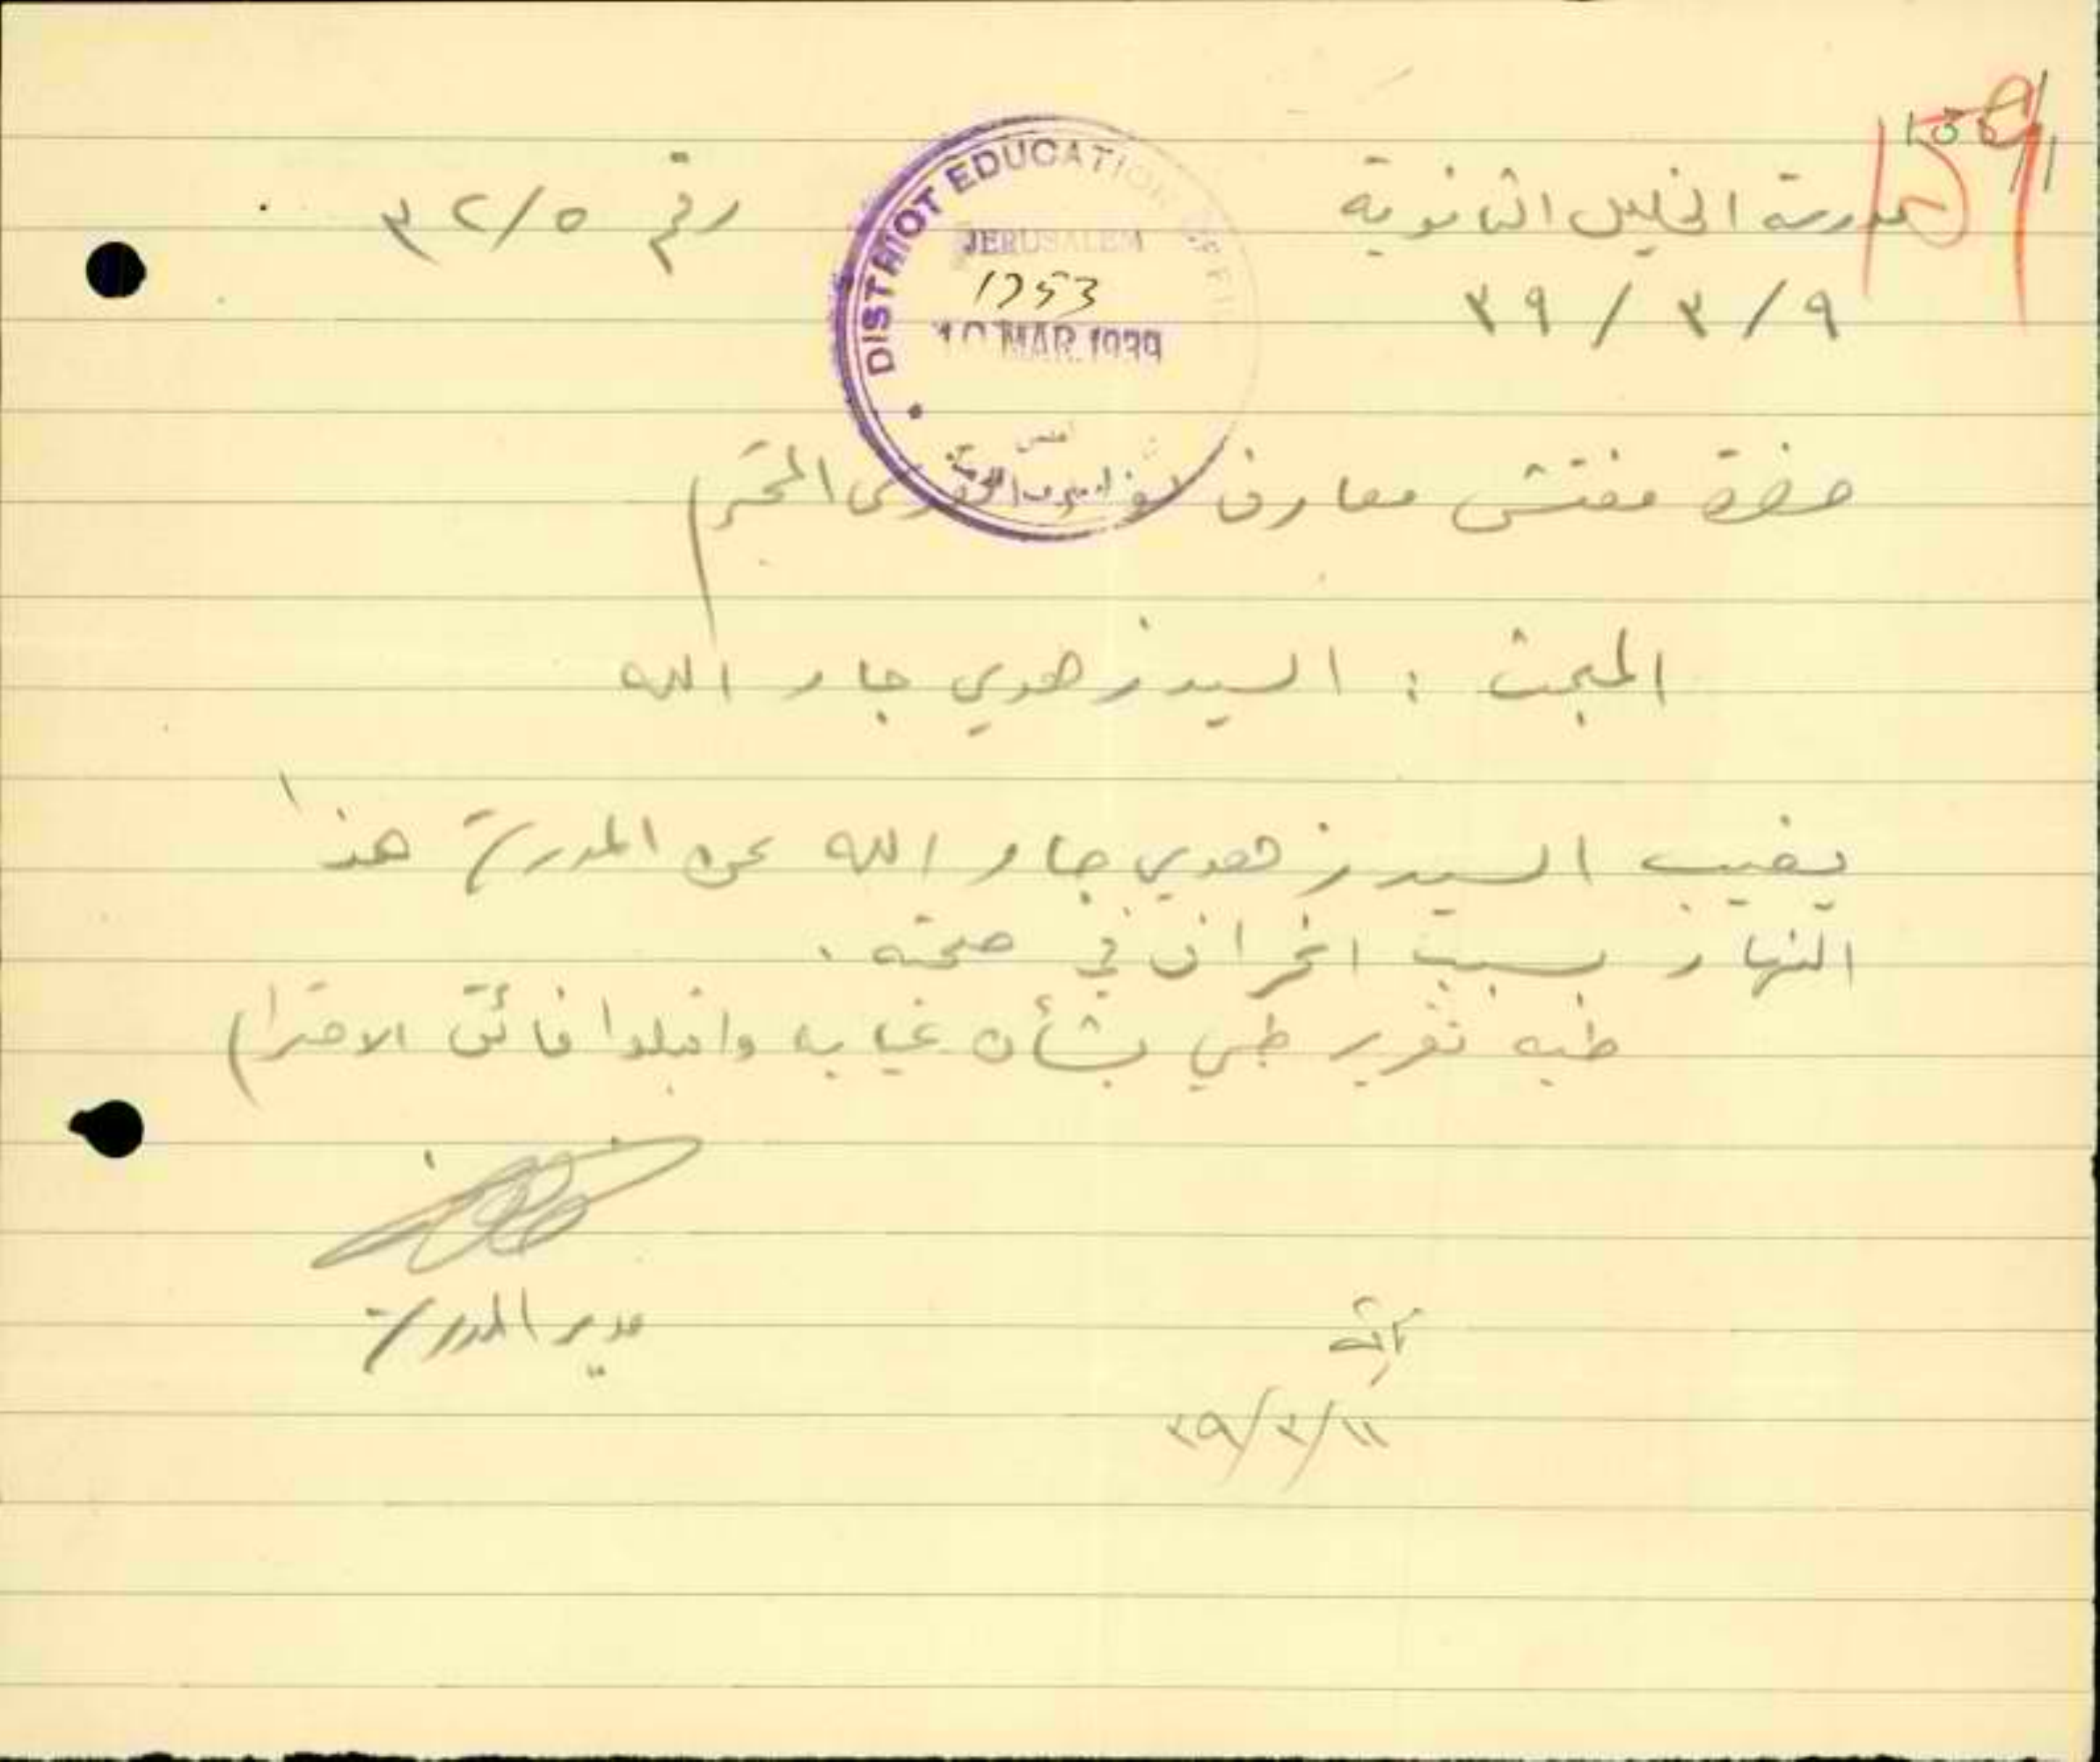 مدرسة الخليل الثانوية
رقم ٣٢/٥
٣٩/٣/٩
DISTRICT EDUCATION OFFICE
JERUSALEM
1753
10 MAR. 1939
حضرة مفتش معارف لواء القدس المحترم
المبحث : السيد زهدي جار الله
يغيب السيد زهدي جار الله عن المدرسة هذا
النهار بسبب انحراف في صحته .
طيه تقرير طبي بشأن غيابه واقبلوا فائق الاحترام
مدير المدرسة
٣٩/٣/١١